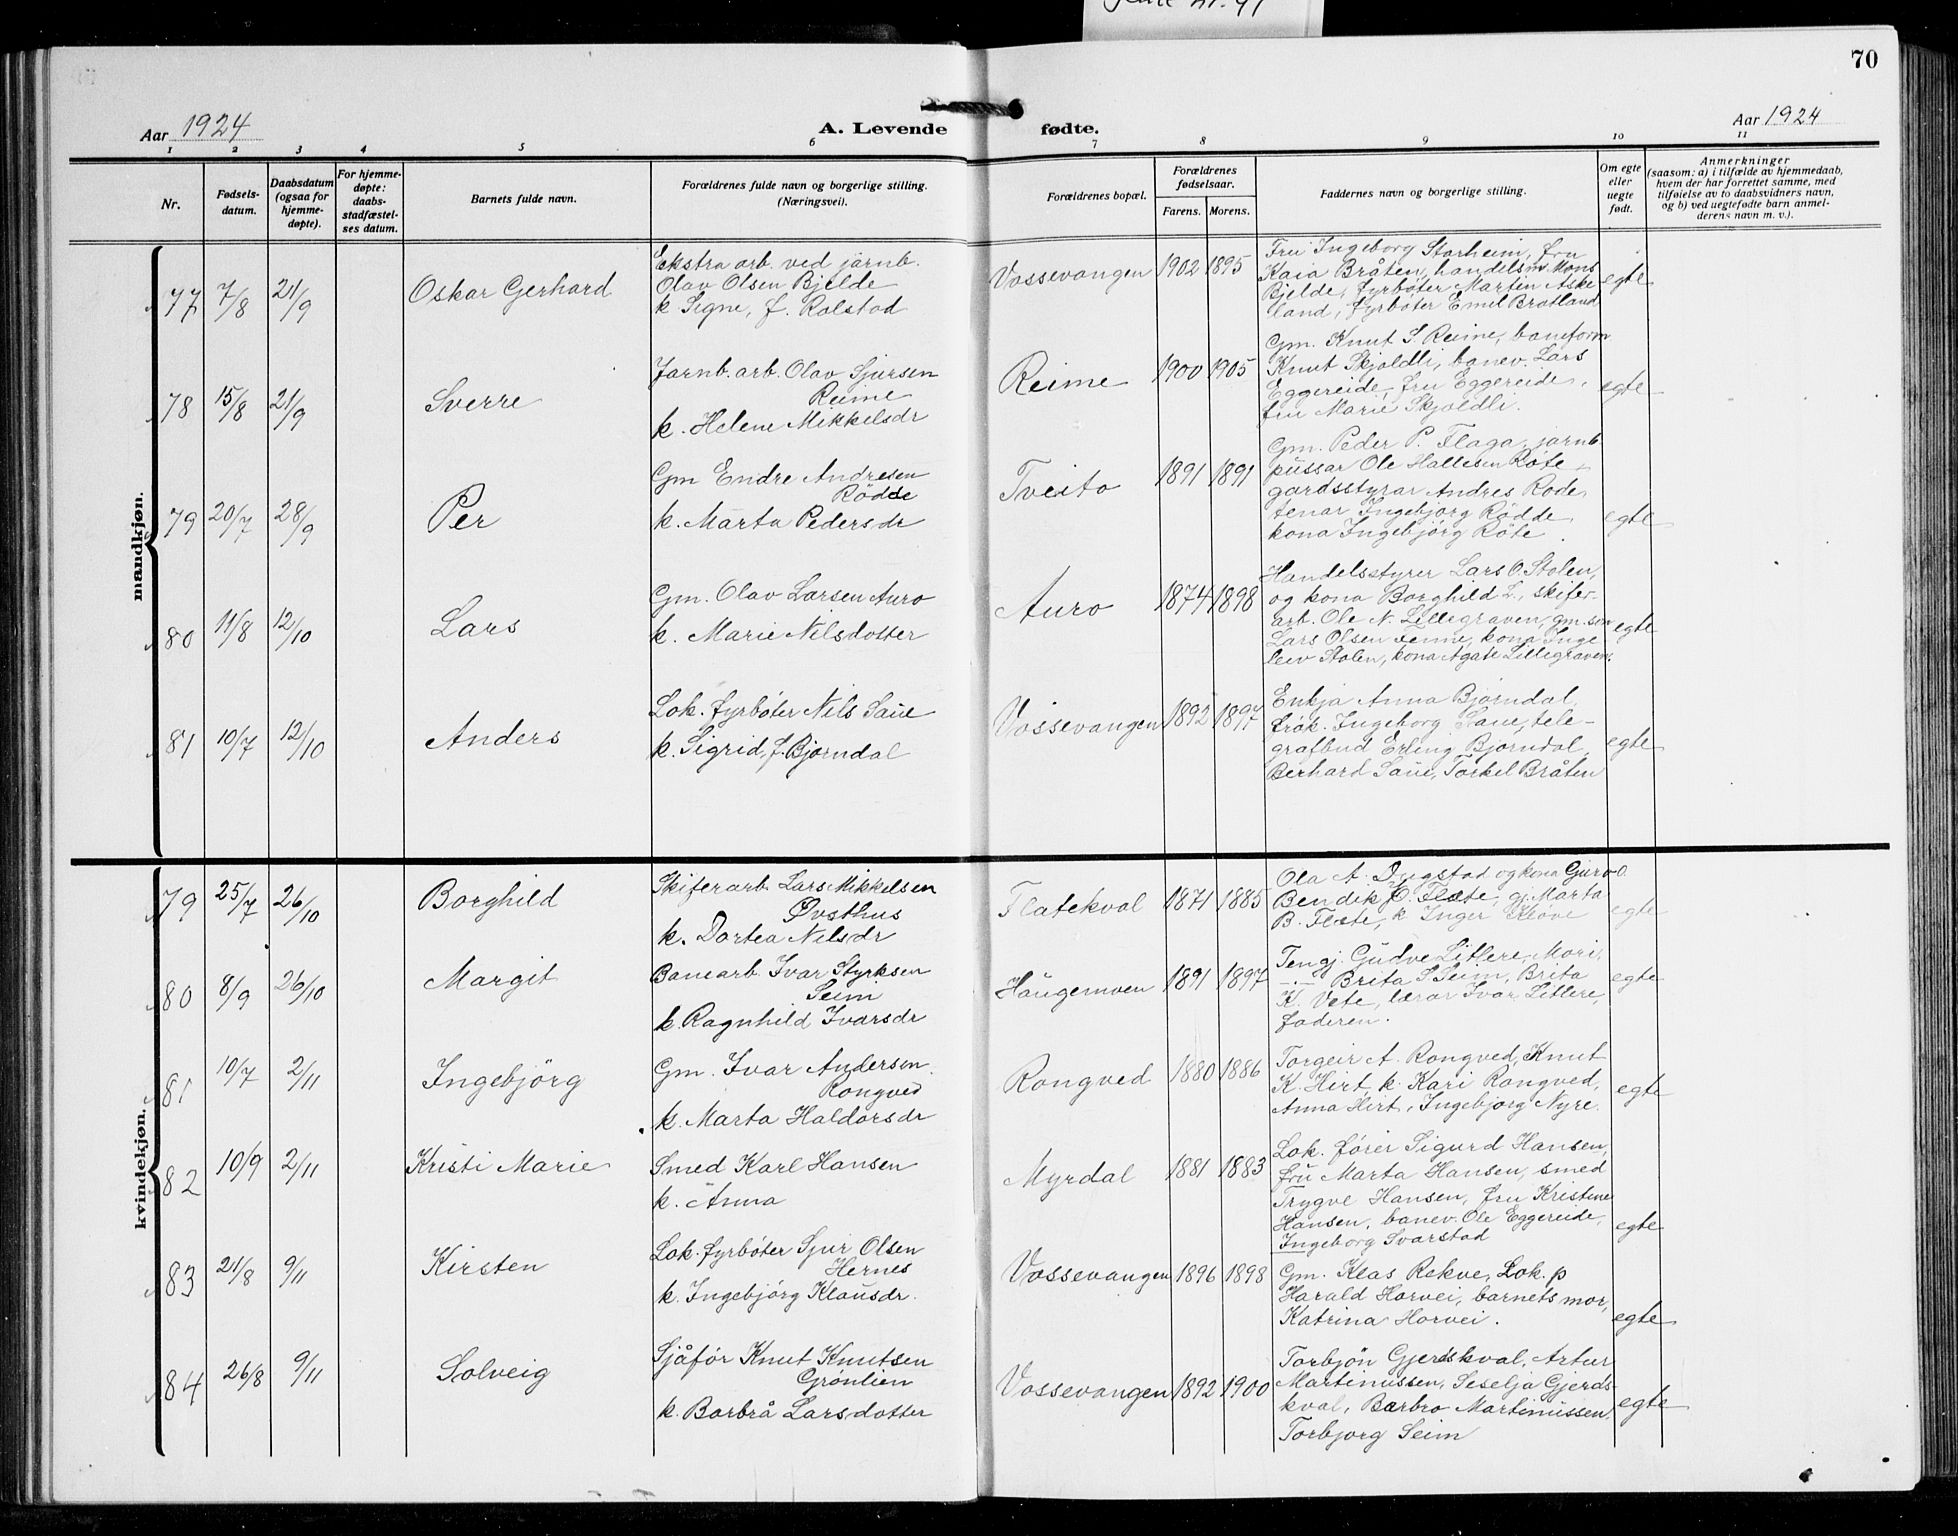 70
Aar 1924
A. Levende fødte.
Aar 1924
1 2 3 4 5 6 7 8 9 10 11
Nr.
Fødsels-
datum.
Daabsdatum
(ogsaa for
hjemme-
døpte).
For hjemme-
døpte:
daabs-
stadfæstel-
ses datum.
Barnets fulde navn.
Forældrenes fulde navn og borgerlige stilling.
(Næringsvei).
Forældrenes bopæl.
Forældrenes
fødselsaar.
Farens. Morens.
Faddernes navn og borgerlige stilling.
Om egte
eller
uegte
født.
Anmerkninger
(saasom: a) i tilfælde av hjemmedaab,
hvem der har forrettet samme, med
tilføielse av to daabsvidners navn,
og b) ved uegtefødte barn anmel-
derens navn m. v.).
mandkjøn.
77 7/8 21/9 Oskar Gerhard
Ekstra arb. ved jarnb.
Olav Olsen Bjelde
k Signe, f. Rolstad
Vossevangen 1902 1895
Fru Ingeborg Storheim, fru
Kaia Bråten, handelsm. Mons
Bjelde, fyrbøter Martin Aske
land, fyrbøter Emil Bratland
egte
78 15/8 21/9 Sverre
Jarnb. arb. Olav Sjursen
Reime
k. Helene Mikkelsdr
Reime 1900 1905
Gm. Knut S. Reime, baneform
Knut Skjoldli, banev. Lars
Eggereide, fru Eggereide,
fru Marie Skjoldli.
egte
79 20/7 28/9 Per
Gm Endre Andresen
Rödde
k. Marta Pedersdr
Tveito 1891 1891
Gm. Peder P. Flaga, jarnb
pussar Ole Hallesen Røte
gardsstyrar Andres Rode
tenar Ingebjorg Rödde
kona Ingebjörg Röte.
egte
80 11/8 12/10 Lars
Gm. Olav Larsen Auro
k. Marie Nilsdotter
Auro 1874 1898
Handelsstyrer Lars O. Stolen,
og kona Borghild L., skifer-
arb. Ole N. Lillegraven, gm. son
Lars Olsen kona Inge
leiv Stolen, kona Agate Lillegraven.
egte
81 10/7 12/10 Anders
Lok. fyrbøter Nils Saue
k. Sigrid, f. Bjørndal
Vossevangen 1892 1897
Enkja Anna Bjørndal,
frök. Ingeborg Saue, tele-
grafbud Erling Bjørndal,
Gerhard Saue, Torkel Bråten
egte
kvindekjøn.
79 25/7 26/10 Borghild
Skiferarb. Lars Mikkelsen
Øvsthus
k. Dortea Nilsdr
Flatekval 1871 1885
Ola A. Dygstad og kona Guro O.
Bendik O. Flæte, gj. Marta
B. Flæte, k Inger Kløve
egte
80 8/9 26/10 Margit
Banearb. Ivar Styrksen
Seim
k. Ragnhild Ivarsdr
Haugemoen 1891 1897
Tengj. Gudve Litlere, Mari,
-.- Brita S Seim, Brita
K. Vete, lærar Ivar Litlere,
faderen.
egte
81 10/7 2/11 Ingebjörg
Gm. Ivar Andersen
Rongved
k. Marta Haldorsdr
Rongved 1880 1886
Torgeir A. Rongved, Knut
K. Hirt, k. Kari Rongved,
Anna Hirt, Ingebjorg Nyre.
egte
82 10/9 2/11 Kristi Marie
Smed Karl Hansen
k. Anna
Myrdal 1881 1883
Lok. fører Sigurd Hansen,
fru Marta Hansen, smed
Trygve Hansen, fru Kristine
Hansen, banev. Ole Eggereide,
Ingeborg Svarstad
egte
83 21/8 9/11 Kirsten
Lok. fyrbøter Sjur Olsen
Hernes
k. Ingebjörg Klausdr.
Vossevangen 1896 1898
Gm. Klas Rekve, Lok. p
Harald Horvei, barnets mor,
Katrina Horvei.
egte
84 26/8 9/11 Solveig
Sjåför Knut Knutsen
Grönlien
k. Borbrå Larsdotter
Vossevangen 1892 1900
Torbjön Gjerdskval, Artur
Martinussen, Seselja Gjerds-
kval, Barbro Martinussen,
Torbjorg Seim
egte